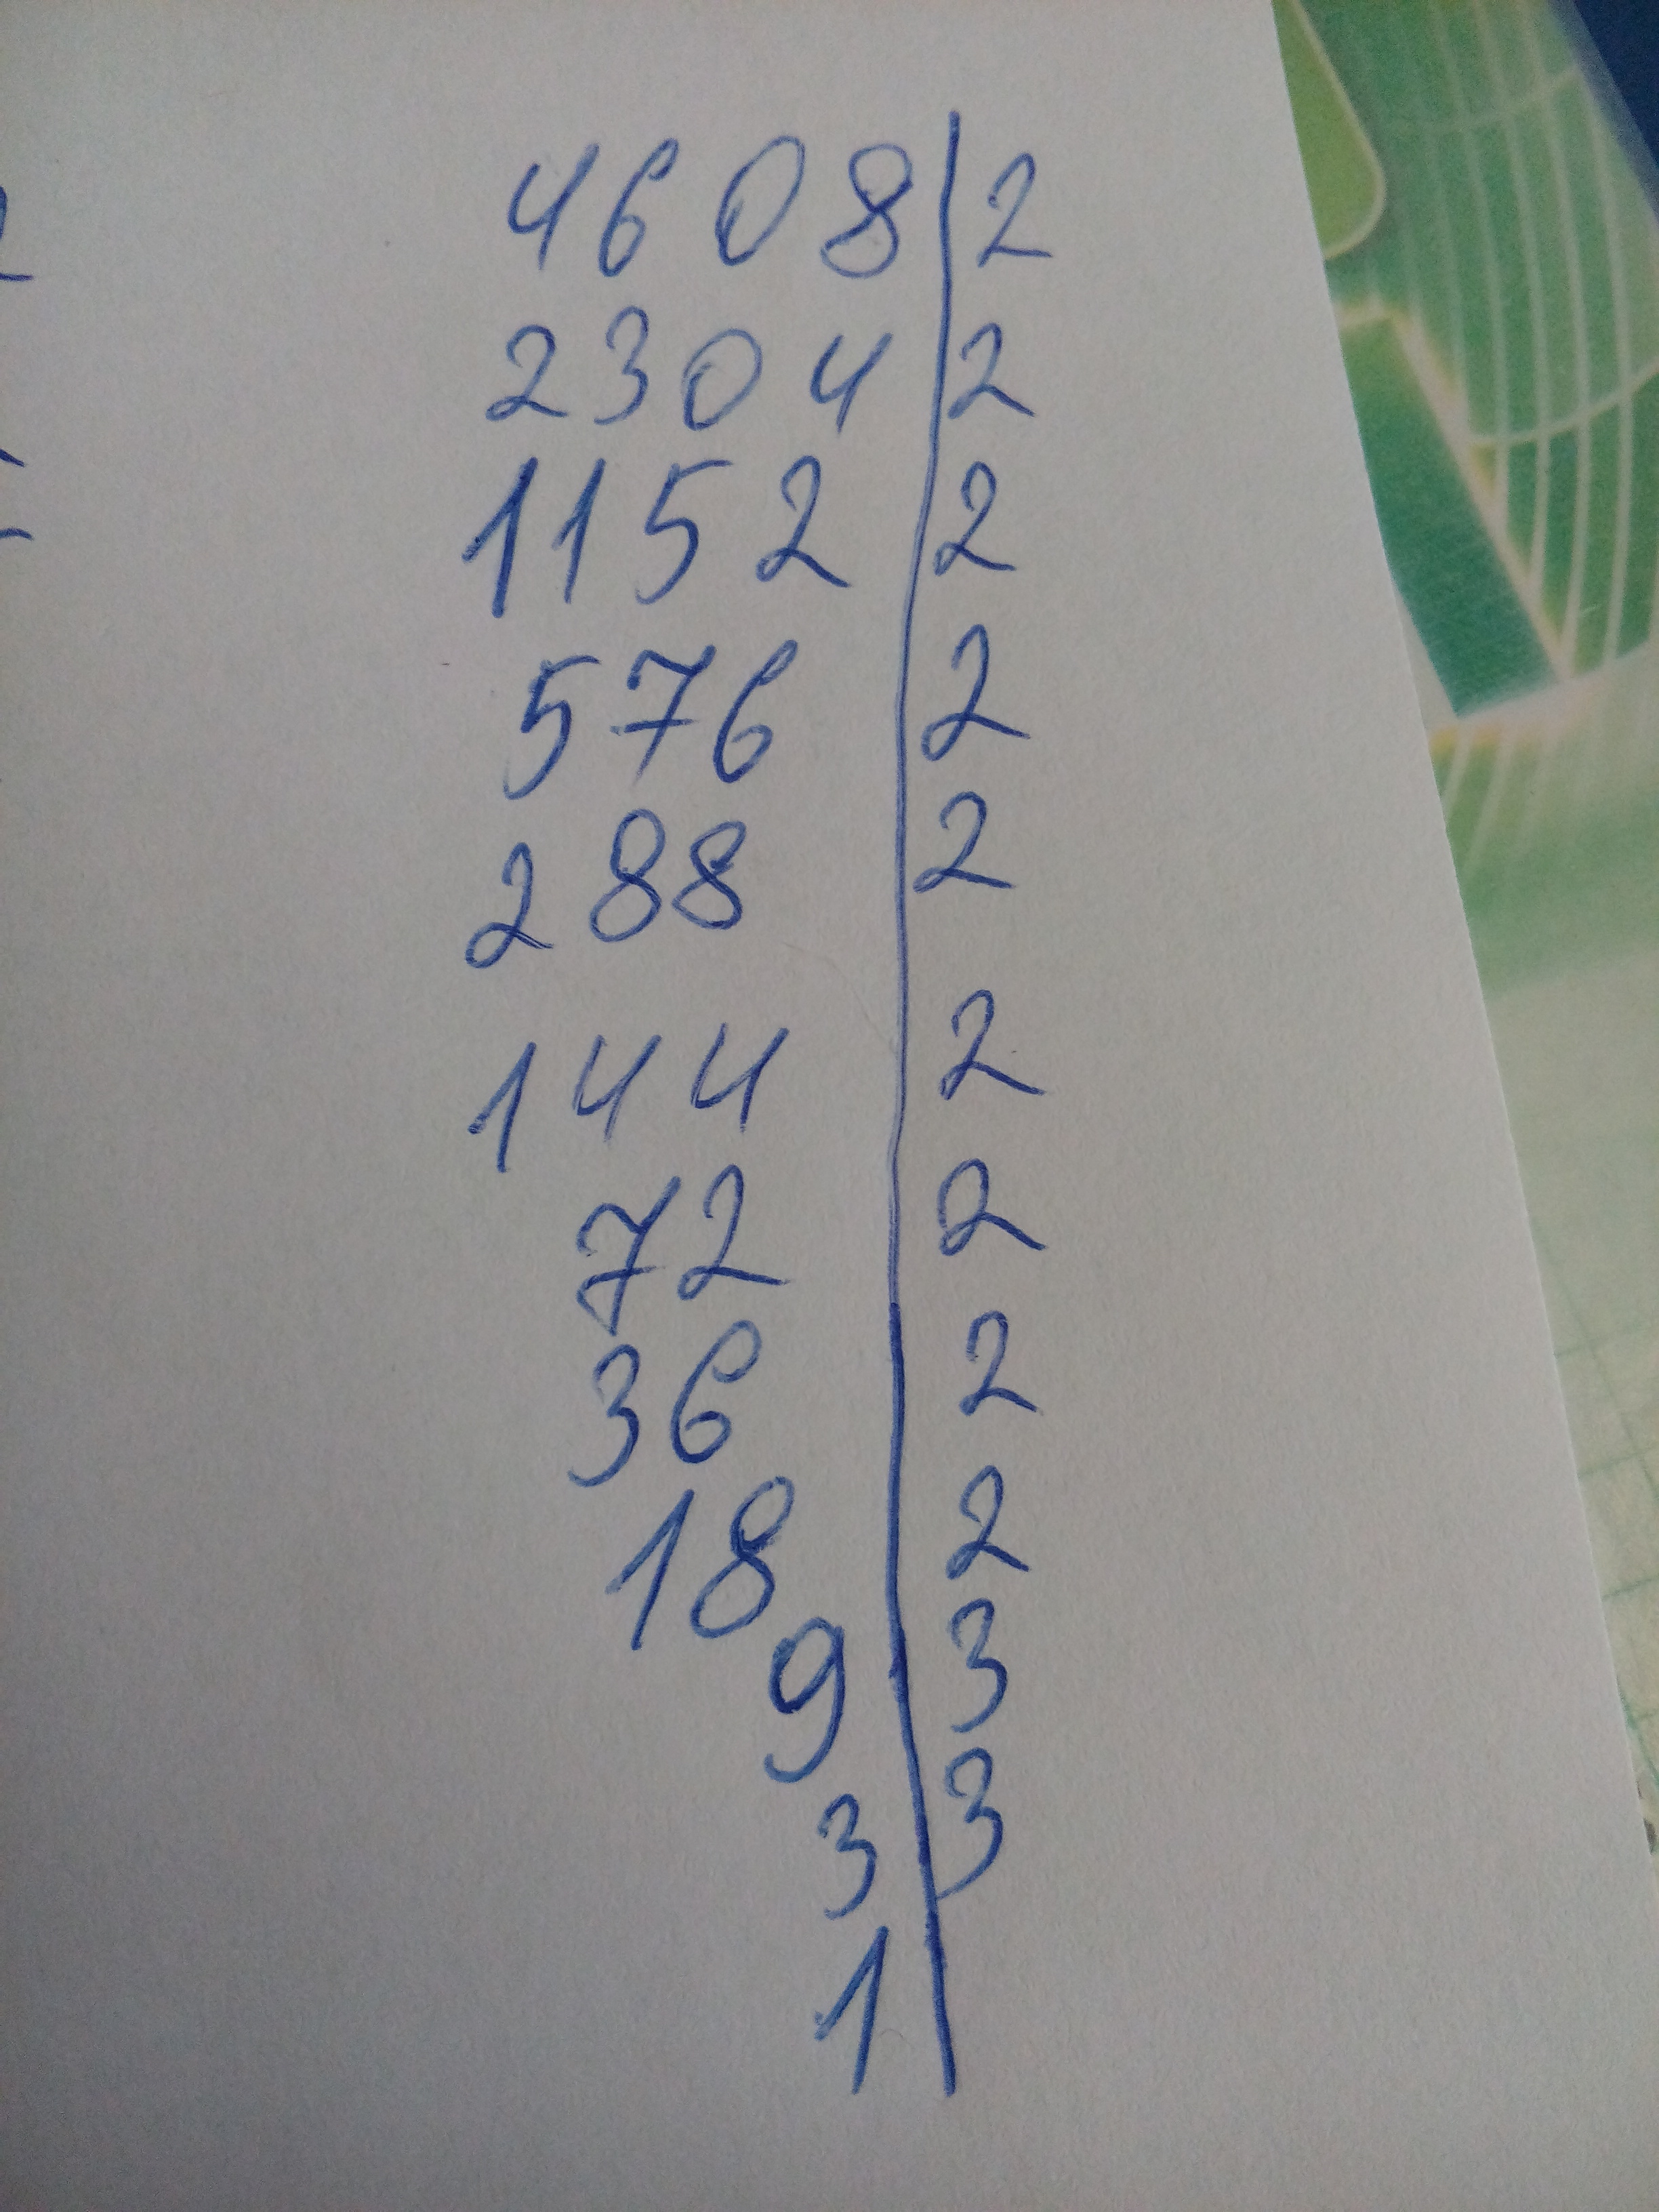 4608 | 2
2304 | 2
1152 | 2
576 | 2
288 | 2
144 | 2
72 | 2
36 | 2
18 | 2
9 | 3
3 | 3
1 |